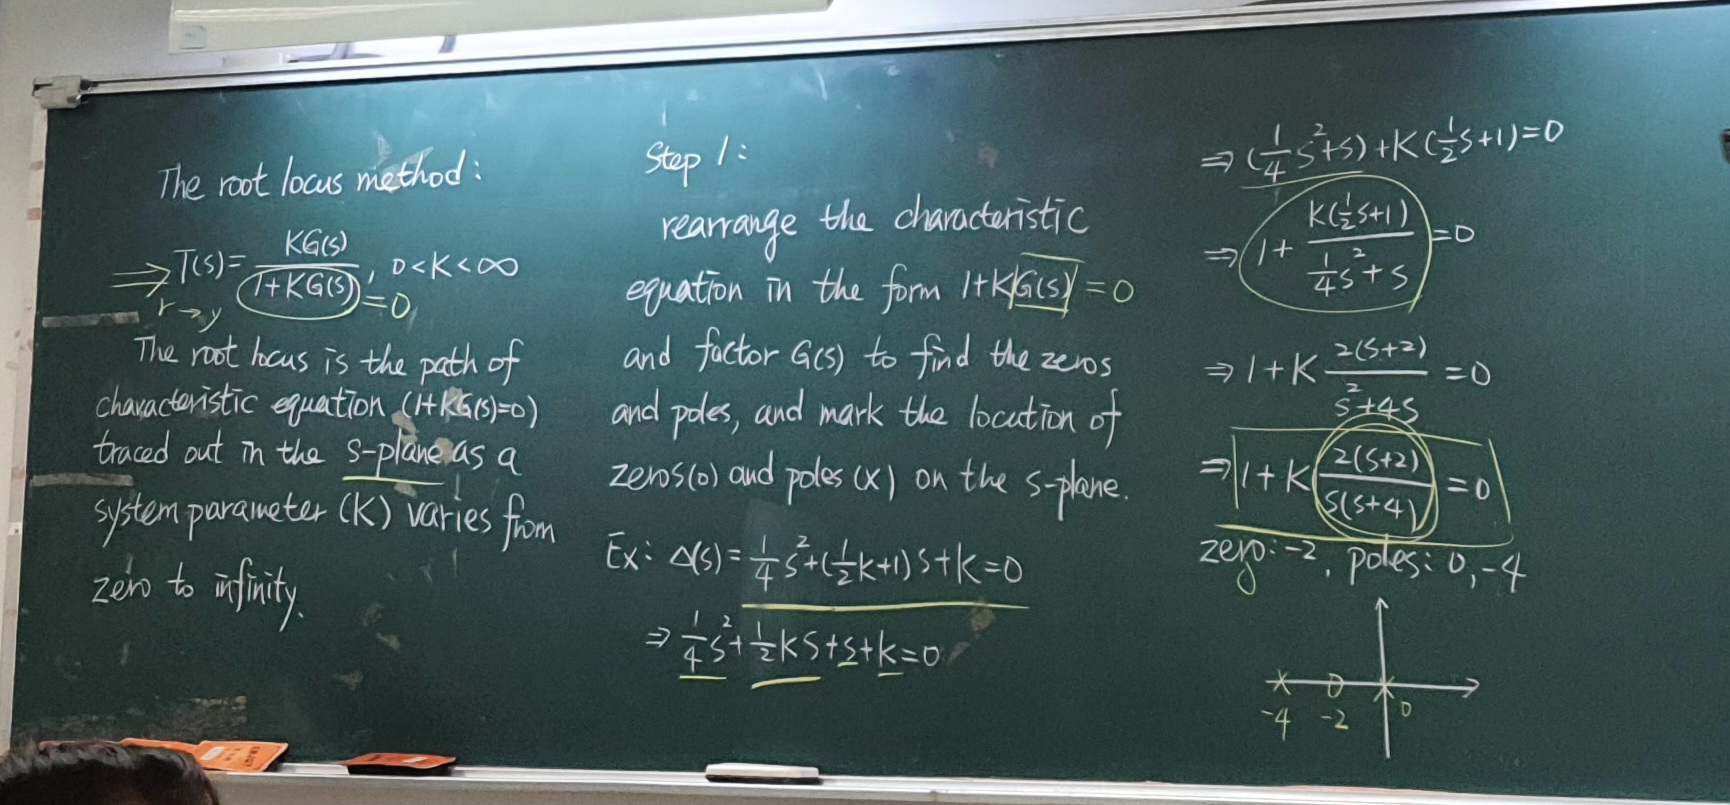 The root locus method:
⇒ T(s)= KG(s) / 1+KG(s), 0<K<∞
r→y =0
The root locus is the path of
characteristic equation (1+KG(s)=0)
traced out in the s-plane as a
system parameter (K) varies from
zero to infinity.
Step 1:
rearrange the characteristic
equation in the form 1+KG(s)=0
and factor G(s) to find the zeros
and poles, and mark the location of
zeros(o) and poles (x) on the s-plane.
Ex: Δ(s)=1/4 s²+(1/2 k+1)s+k=0
⇒ 1/4 s²+1/2 ks+s+k=0
⇒ (1/4 s²+s)+K(1/2 s+1)=0
⇒ 1+ K(1/2 s+1) / 1/4 s²+s =0
⇒ 1+K 2(s+2) / s²+4s =0
⇒ 1+K 2(s+2) / s(s+4) =0
zero: -2, poles: 0, -4
-4 -2 0